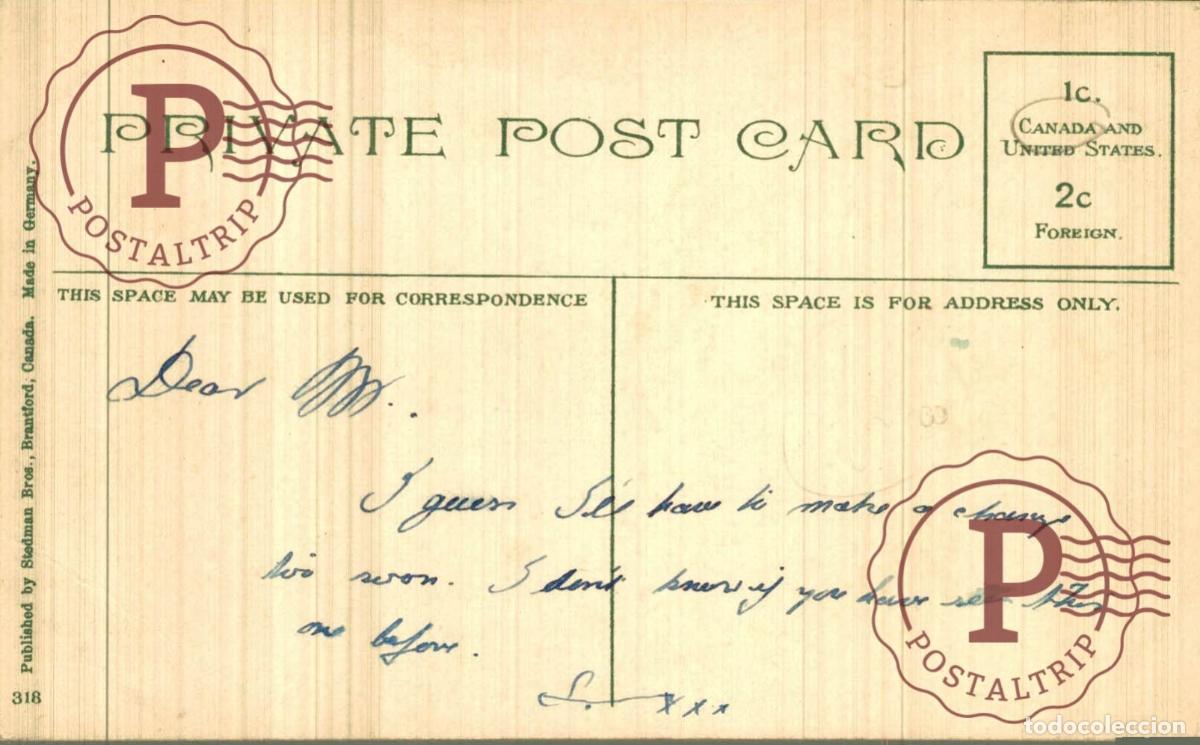 PRIVATE POST CARD
1c.
CANADA AND
UNITED STATES.
2c
FOREIGN.
THIS SPACE MAY BE USED FOR CORRESPONDENCE
THIS SPACE IS FOR ADDRESS ONLY.
Dear M.
I guess I'll have to make a change
too soon. I don't know if you have seen this
one before.
S. xxx
Published by Stedman Bros., Brantford, Canada. Made in Germany.
318
P
POSTALTRIP
P
POSTALTRIP
todocoleccion